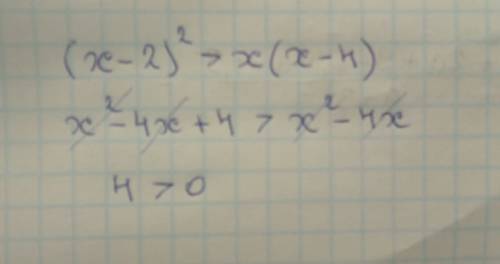 (x-2)² > x(x-4)
x²-4x+4 > x²-4x
4 > 0